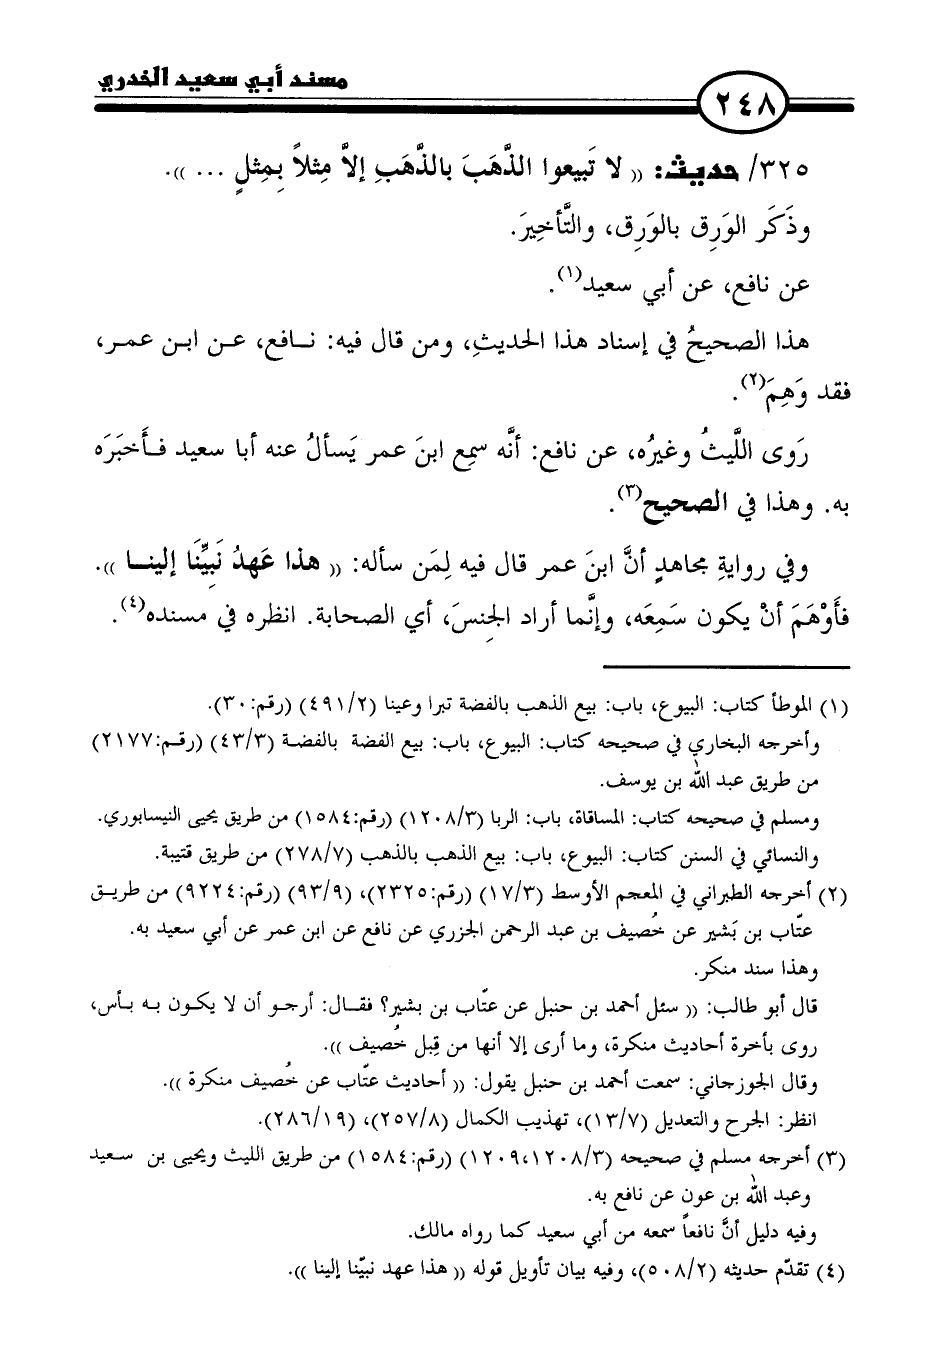 مسند أبي سعيد الخدري
٢٤٨
٣٢٥/ حديث: (( لا تَبيعوا الذَّهَبَ بالذَّهَبِ إلاَّ مِثلاً بِمِثلٍ ... )).
وذَكَر الوَرِق بالوَرِق، والتَّأخِيرَ.
عن نافع، عن أبي سعيد(١).
هذا الصحيحُ في إسناد هذا الحديثِ، ومن قال فيه: نافع، عن ابن عمر،
فقد وَهِمَ(٢).
رَوى اللَّيثُ وغيرُه، عن نافع: أنَّه سمِع ابنَ عمر يَسألُ عنه أبا سعيد فأَخبَرَه
به. وهذا في الصحيح(٣).
وفي روايةِ مجاهدٍ أنَّ ابنَ عمر قال فيه لِمَن سأله: (( هذا عَهدُ نَبِيِّنَا إلينا )).
فأَوْهَمَ أنْ يكون سَمِعَه، وإنَّما أراد الجِنسَ، أي الصحابة. انظره في مسنده(٤).
(١) الموطأ كتاب: البيوع، باب: بيع الذهب بالفضة تبرا وعينا (٤٩١/٢) (رقم:٣٠).
وأخرجه البخاري في صحيحه كتاب: البيوع، باب: بيع الفضة بالفضة (٤٣/٣) (رقم:٢١٧٧)
من طريق عبد الله بن يوسف.
ومسلم في صحيحه كتاب: المساقاة، باب: الربا (١٢٠٨/٣) (رقم:١٥٨٤) من طريق يحيى النيسابوري.
والنسائي في السنن كتاب: البيوع، باب: بيع الذهب بالذهب (٢٧٨/٧) من طريق قتيبة.
(٢) أخرجه الطبراني في المعجم الأوسط (١٧/٣) (رقم:٢٣٢٥)، (٩٣/٩) (رقم:٩٢٢٤) من طريق
عتّاب بن بَشير عن خُصيف بن عبد الرحمن الجزري عن نافع عن ابن عمر عن أبي سعيد به.
وهذا سند منكر.
قال أبو طالب: (( سئل أحمد بن حنبل عن عتّاب بن بشير؟ فقال: أرجو أن لا يكون به بأس،
روى بأخرة أحاديث منكرة، وما أرى إلا أنها من قِبل خُصيف )).
وقال الجوزجاني: سمعت أحمد بن حنبل يقول: (( أحاديث عتّاب عن خُصيف منكرة )).
انظر: الجرح والتعديل (١٣/٧)، تهذيب الكمال (٢٥٧/٨)، (٢٨٦/١٩).
(٣) أخرجه مسلم في صحيحه (١٢٠٨/٣،١٢٠٩) (رقم:١٥٨٤) من طريق الليث ويحيى بن سعيد
وعبد الله بن عون عن نافع به.
وفيه دليل أنَّ نافعاً سمعه من أبي سعيد كما رواه مالك.
(٤) تقدّم حديثه (٥٠٨/٢)، وفيه بيان تأويل قوله (( هذا عهد نبيّنا إلينا )).